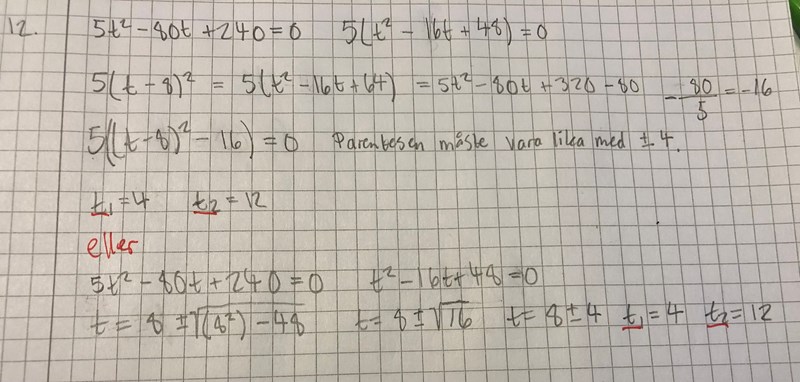 12. 5t² - 80t + 240 = 0 5(t² - 16t + 48) = 0
5(t - 8)² = 5(t² - 16t + 64) = 5t² - 80t + 320 - 80 - 80/5 = -16
5((t - 8)² - 16) = 0 Parentesen måste vara lika med ± 4.
t₁ = 4 t₂ = 12
eller
5t² - 80t + 240 = 0 t² - 16t + 48 = 0
t = 8 ± √((8²) - 48) t = 8 ± √16 t = 8 ± 4 t₁ = 4 t₂ = 12